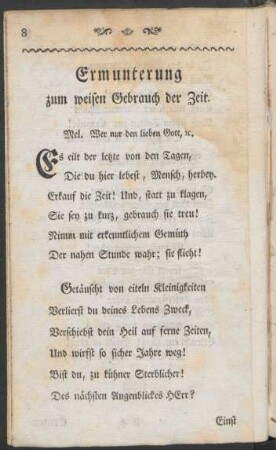 8
Ermunterung
zum weisen Gebrauch der Zeit.
Mel. Wer nur den lieben Gott, ꝛc.
Es eilt der letzte von den Tagen,
Die du hier lebest, Mensch, herbey.
Erkauf die Zeit! Und, statt zu klagen,
Sie sey zu kurz, gebrauch sie treu!
Nimm mit erkenntlichem Gemüth
Der nahen Stunde wahr; sie flieht!
Getäuscht von eiteln Kleinigkeiten
Verlierst du deines Lebens Zweck,
Verschiebst dein Heil auf ferne Zeiten,
Und wirfst so sicher Jahre weg!
Bist du, zu kühner Sterblicher!
Des nächsten Augenblickes HErr?
Einst